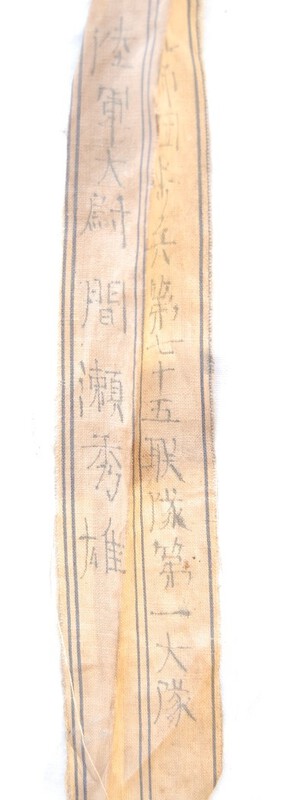 歩兵第七十五联隊第一大隊
陸軍大尉 間瀬秀雄